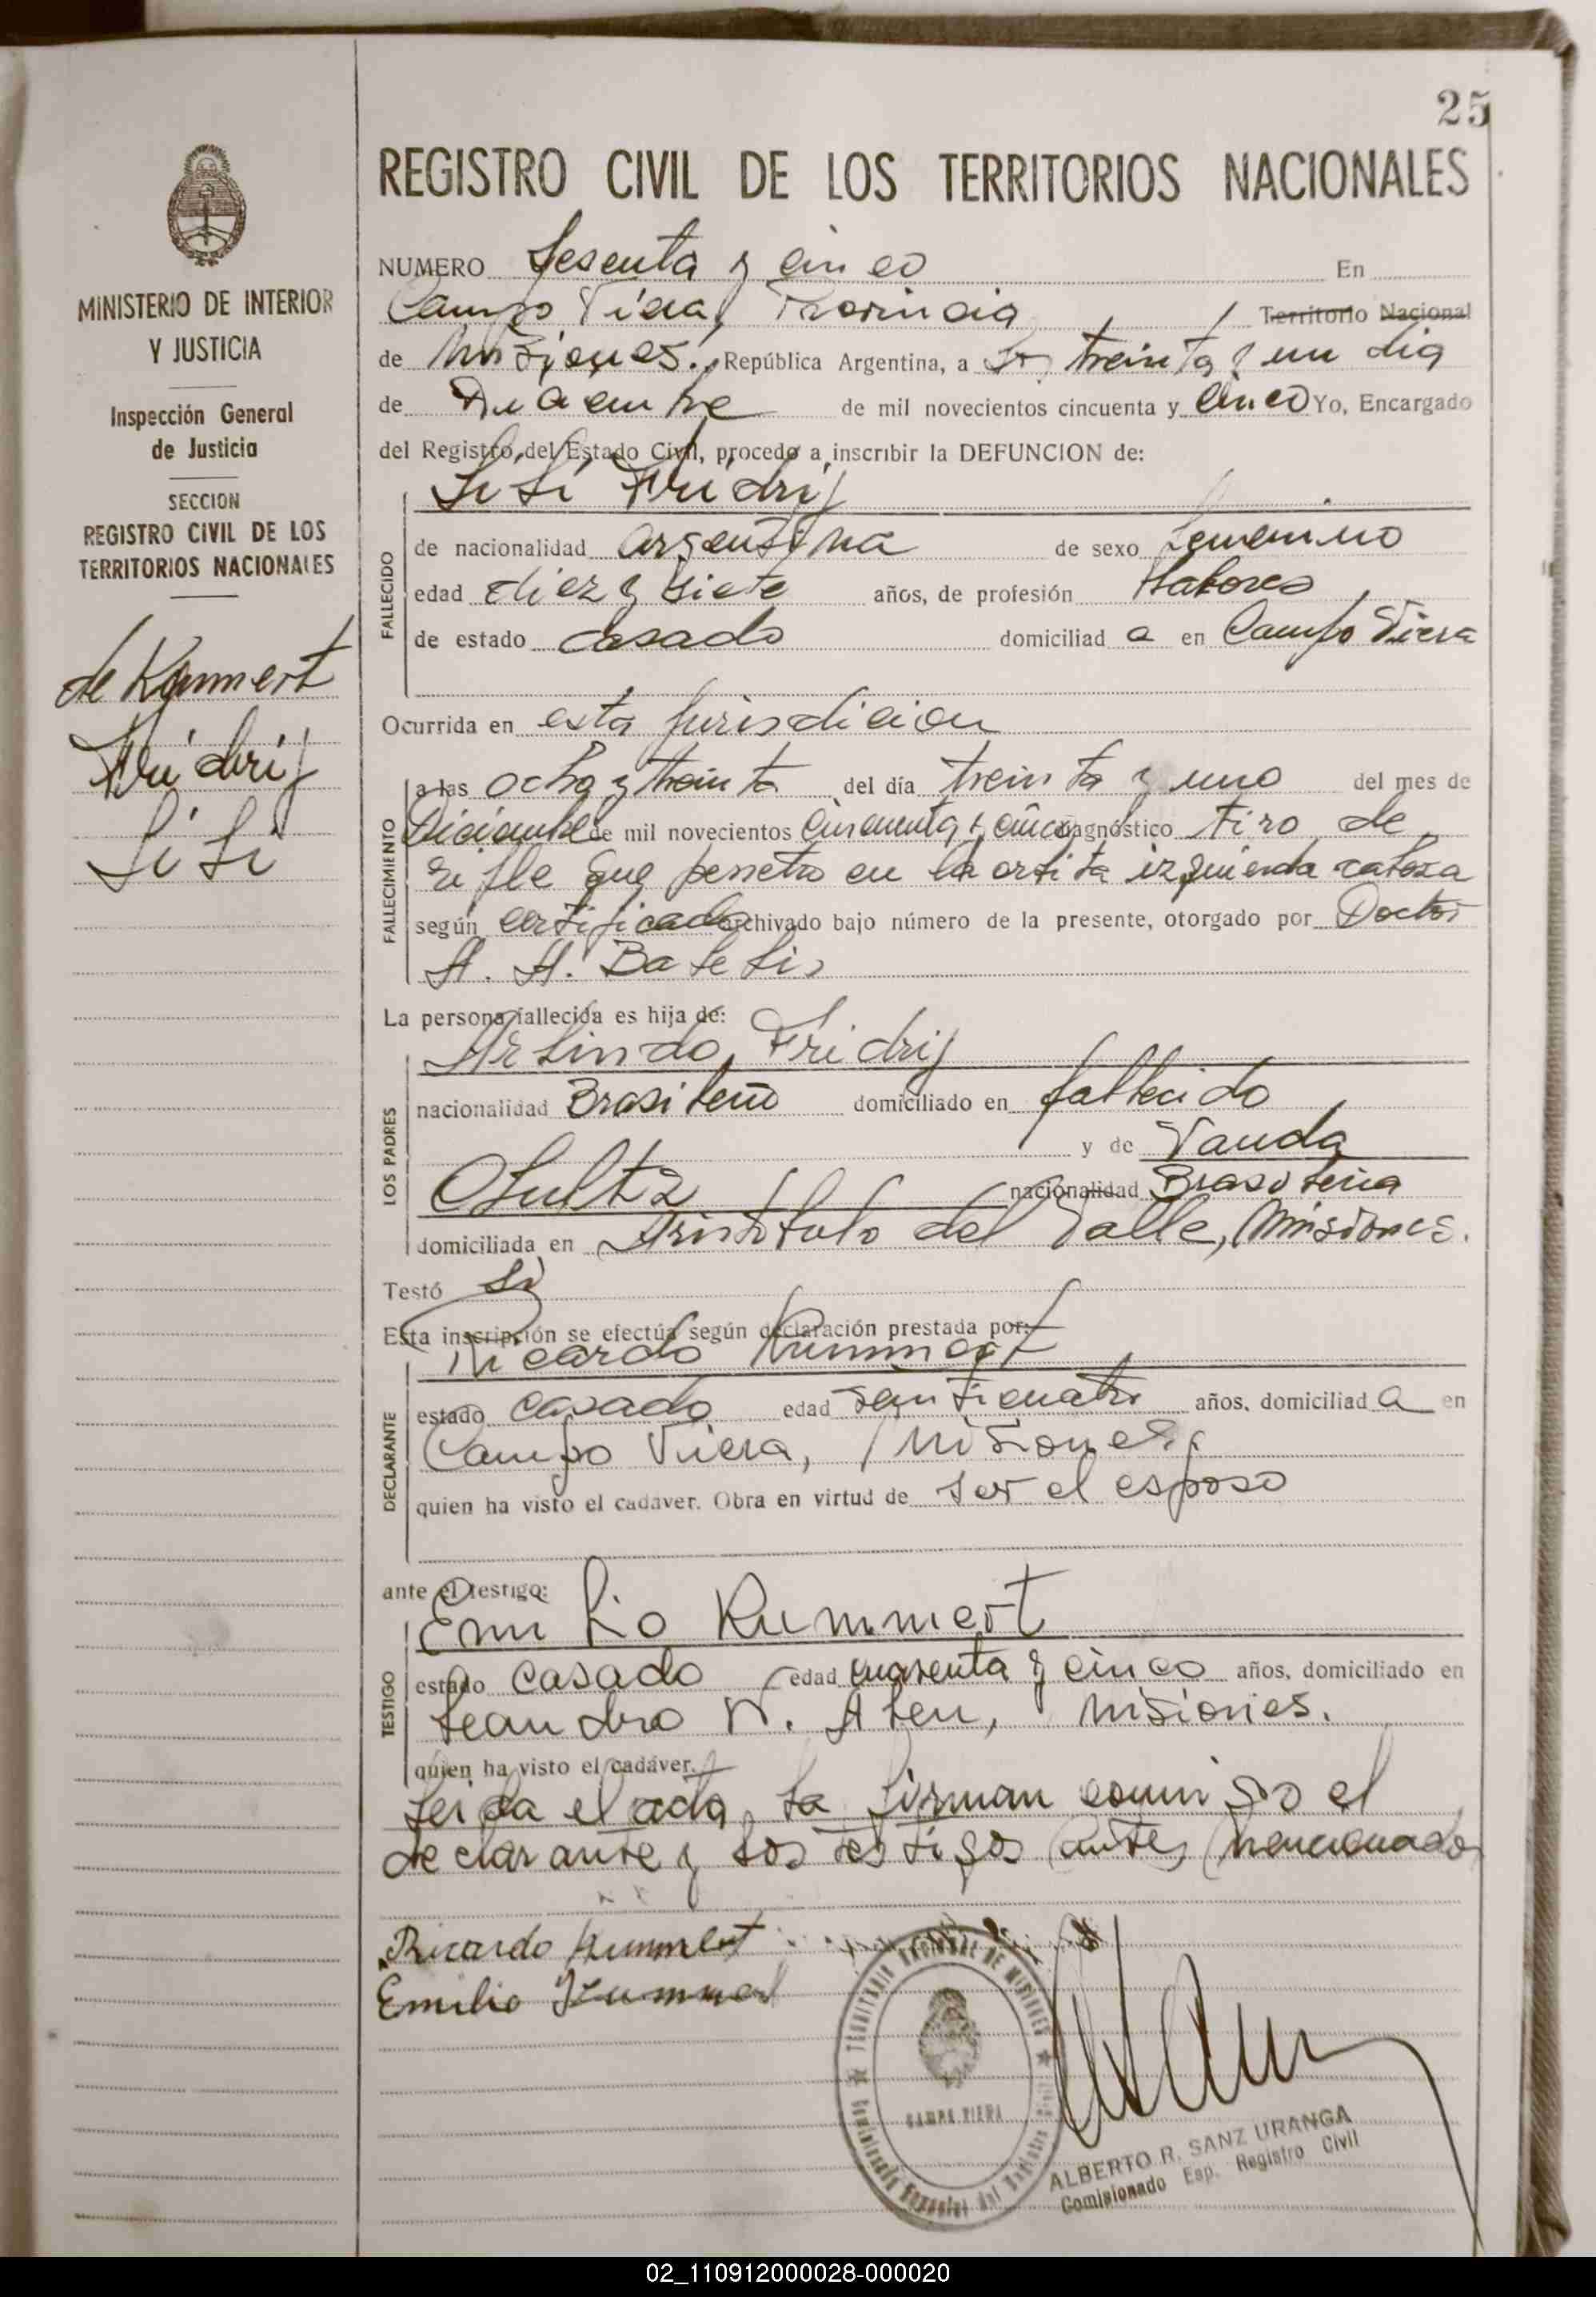 25
REGISTRO CIVIL DE LOS TERRITORIOS NACIONALES
MINISTERIO DE INTERIOR
Y JUSTICIA
Inspección General
de Justicia
SECCION
REGISTRO CIVIL DE LOS
TERRITORIOS NACIONALES
de Kummert
Fridrij
Li Li
NUMERO Sesenta y cinco En
Campo Viera, Provincia Territorio Nacional
de Misiones, República Argentina, a treinta y un dia
de Diciembre de mil novecientos cincuenta y Cinco Yo, Encargado
del Registro del Estado Civil, procedo a inscribir la DEFUNCION de:
Li Li Fridrij
FALLECIDO
de nacionalidad argentina de sexo femenino
edad diez y siete años, de profesión Labores
de estado casado domiciliad a en Campo Viera
Ocurrida en esta jurisdicion
FALLECIMIENTO
a las ocho y treinta del día treinta y uno del mes de
Diciembre de mil novecientos Cincuenta y cinco diagnóstico tiro de
rifle que penetro en la orbita izquierda cabeza
según certificado archivado bajo número de la presente, otorgado por Doctor
A. A.
La persona fallecida es hija de:
LOS PADRES
Arlindo Fridrij
nacionalidad Brasileño domiciliado en fallecido
y de Vanda
Chultz nacionalidad Brasileña
domiciliada en Aristobulo del Valle, Misiones.
Testó
Esta inscripción se efectúa según declaración prestada por:
DECLARANTE
Ricardo Kummert
estado casado edad años, domiciliad a en
Campo Viera, Misiones
quien ha visto el cadáver. Obra en virtud de ser el esposo
ante el testigo:
TESTIGO
Emilio Kummert
estado casado edad cuarenta y cinco años, domiciliado en
Leandro N. Alen, Misiones.
quien ha visto el cadáver.
Leida el acta, la firman conmigo el
declarante y los testigos antes mencionados
Ricardo Kummert
Emilio Kummert
TERRITORIO NACIONAL DE MISIONES
CAMPO VIERA
ALBERTO R. SANZ URANGA
Comisionado Esp. Registro Civil
02_110912000028-000020